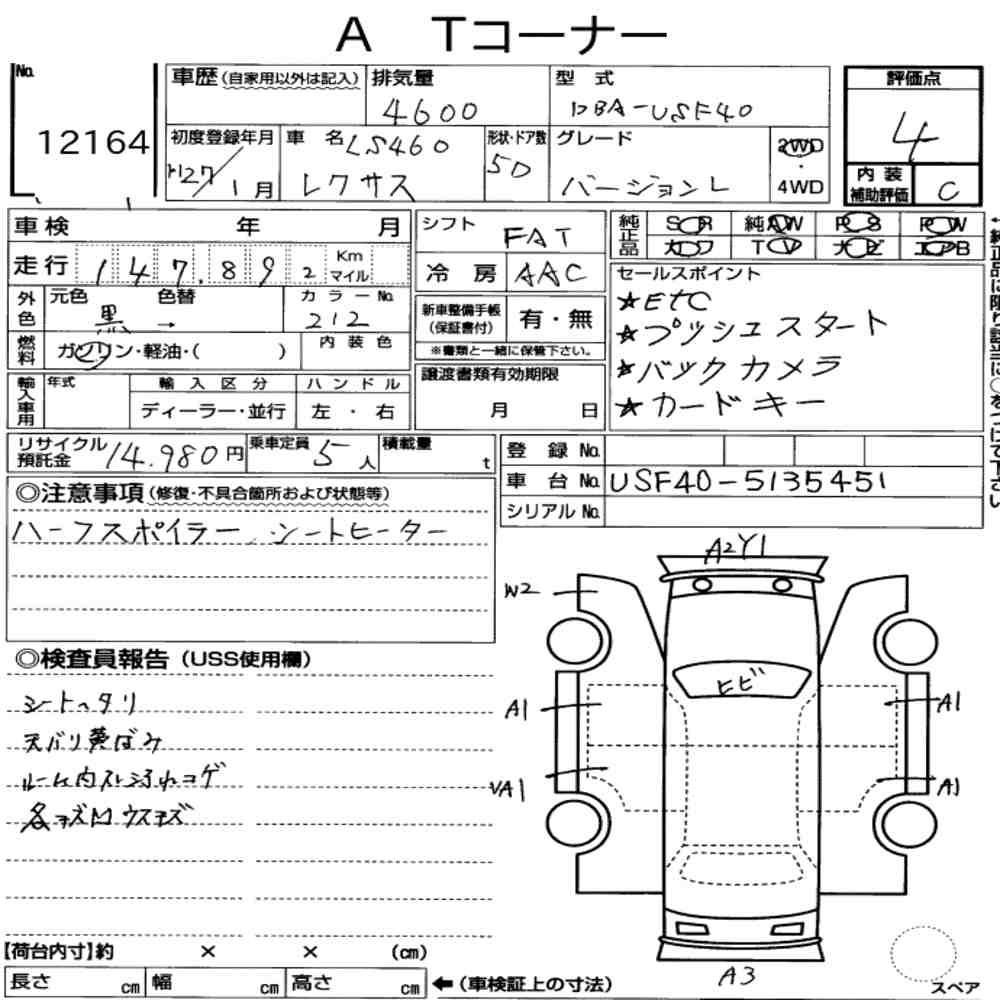 A Tコーナー
No. 12164
車歴(自家用以外は記入)
排気量 4600
型 式 DBA-USF40
評価点 4
初度登録年月 H27/1月
車 名 LS460 レクサス
形状・ドア数 5D
グレード バージョンL
2WD・4WD
内装補助評価 C
車検 年 月
シフト FAT
純正品 SR 純AW PS PW
カワ TV ナビ エアB
走行 147,892 Km マイル
冷 房 AAC
セールスポイント
★ETC
★プッシュスタート
★バックカメラ
★カードキー
外色 元色 黒 → 色替
カラーNo. 212
新車整備手帳(保証書付) 有・無
※書類と一緒に保管下さい。
燃料 ガソリン・軽油・( )
内 装 色
輸入車用 年式
輸 入 区 分 ディーラー・並行
ハ ン ド ル 左 ・ 右
譲渡書類有効期限
月 日
リサイクル預託金 14,980円
乗車定員 5人
積載量 t
登 録 No.
車 台 No. USF40-5135451
シリアル No.
◎注意事項(修復・不具合箇所および状態等)
ハーフスポイラー、シートヒーター
◎検査員報告(USS使用欄)
シートヘタリ
天バリ黄ばみ
ルーム内スレ汚れコゲ
各キズ凹ウスキズ
A2Y1
W2
ヒビ
A1
A1
A1
A3
スペア
【荷台内寸】約 × × (cm)
長さ cm 幅 cm 高さ cm
←(車検証上の寸法)